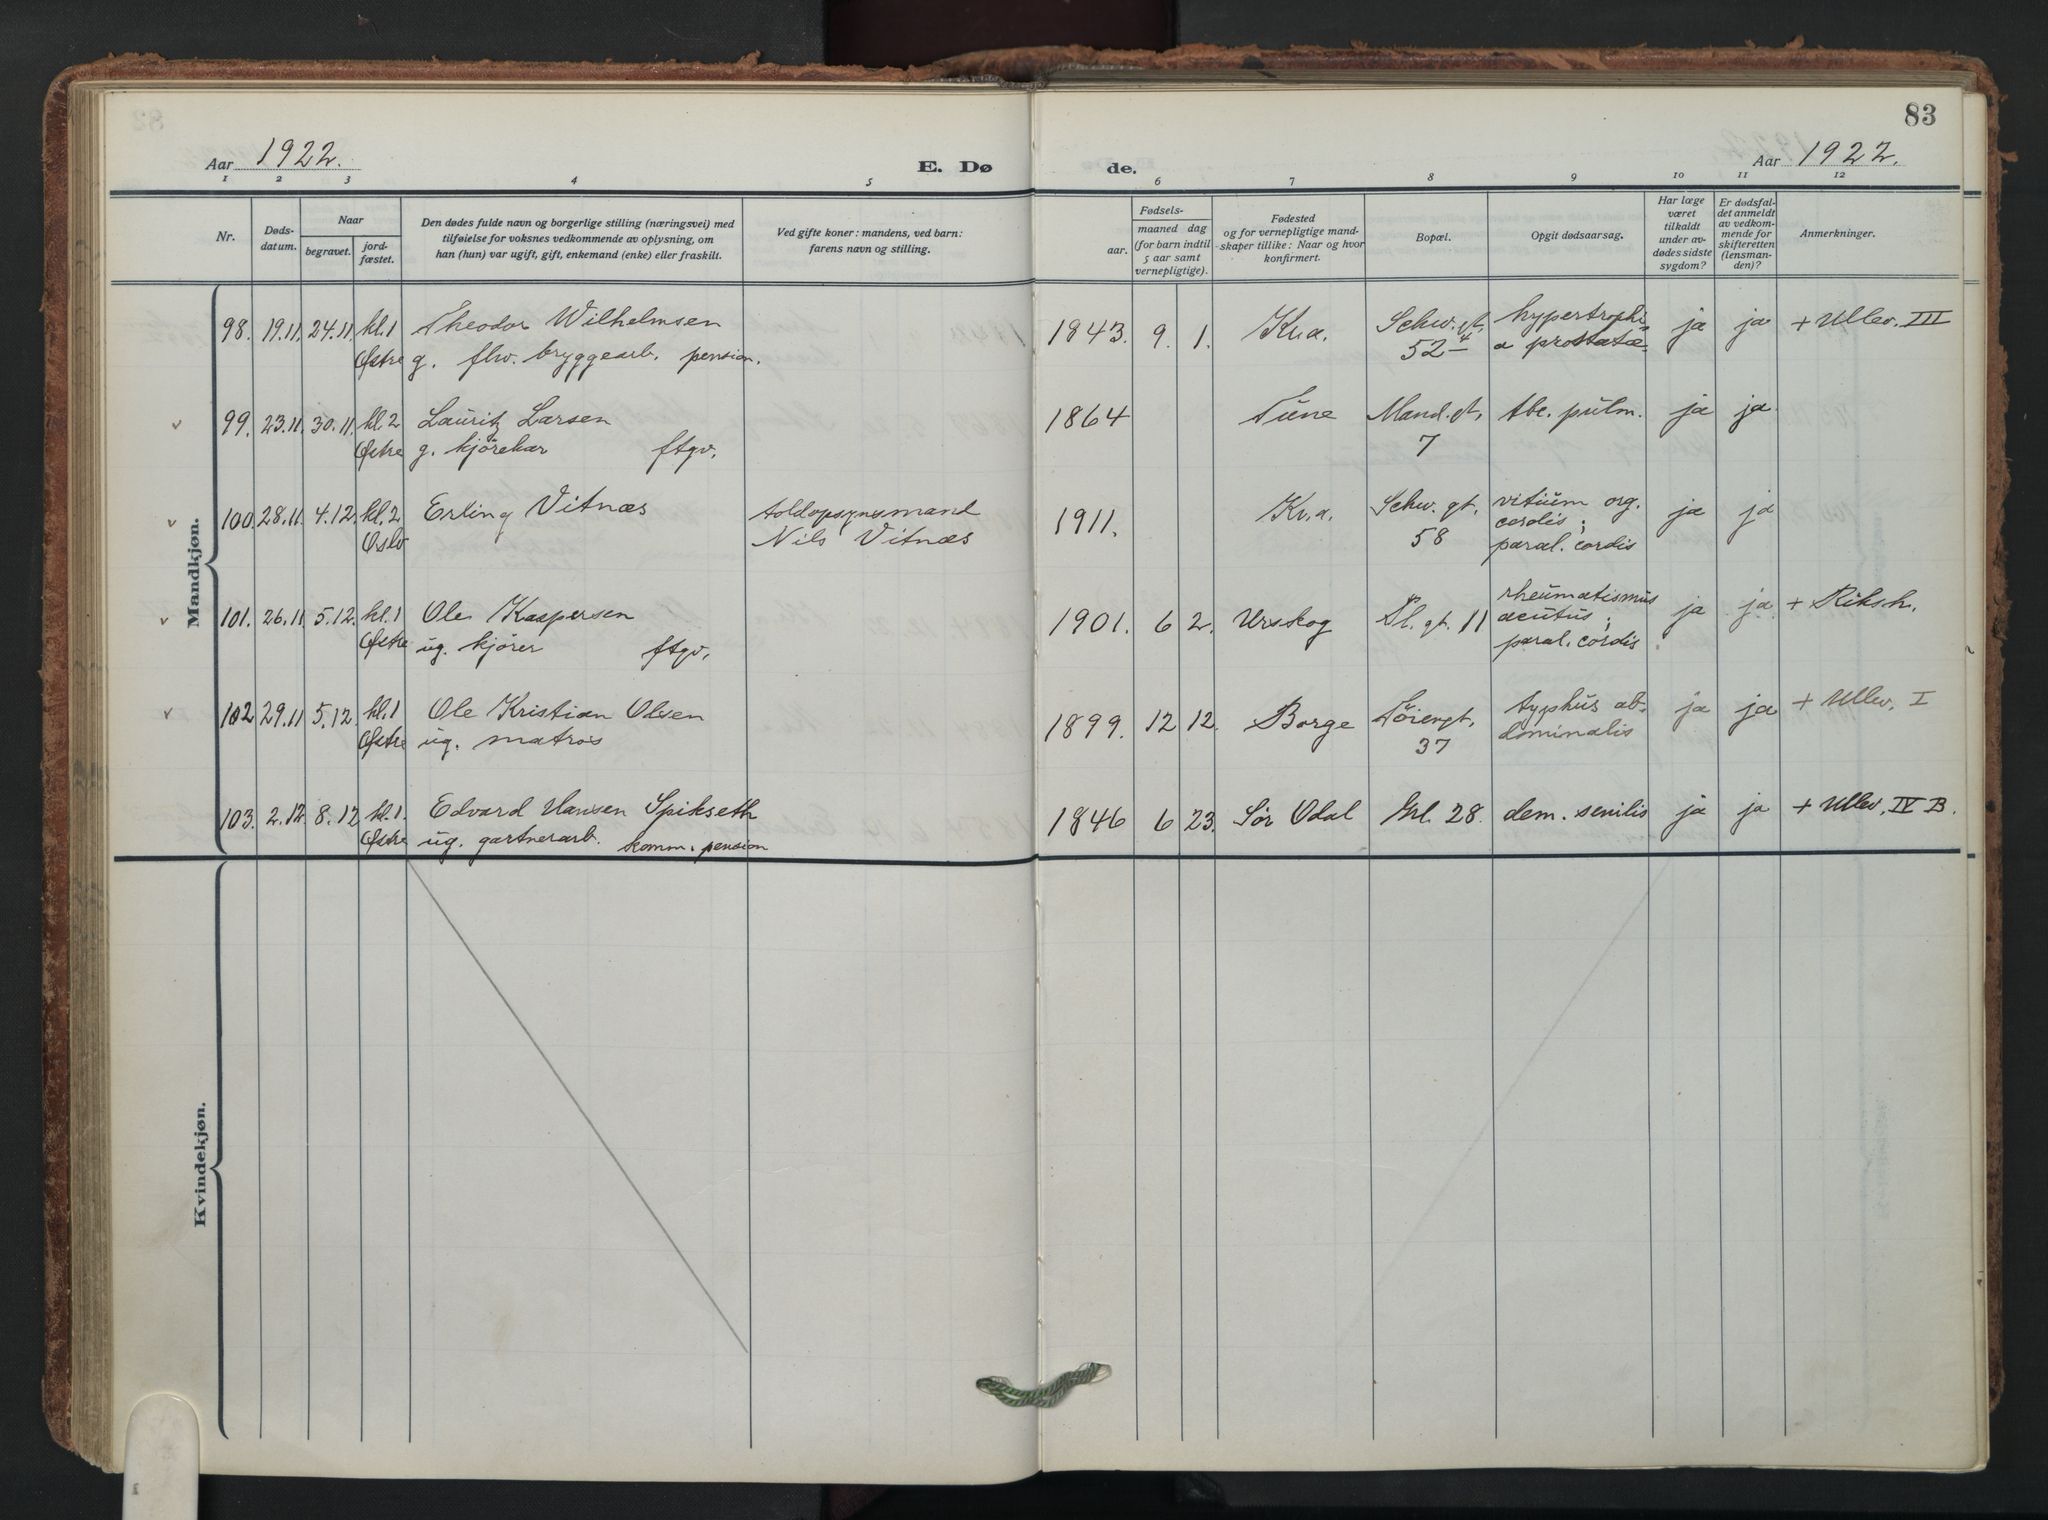 83
Aar 1922.
E. Dø
de.
Aar 1922.
1 2 3 4 5 6 7 8 9 10 11 12
Nr.
Døds-
datum.
Naar
begravet.
jord-
fæstet.
Den dødes fulde navn og borgerlige stilling (næringsvei) med
tilføielse for voksnes vedkommende av oplysning, om
han (hun) var ugift, gift, enkemand (enke) eller fraskilt.
Ved gifte koner: mandens, ved barn:
farens navn og stilling.
Fødsels-
aar.
maaned dag
(for barn indtil
5 aar samt
vernepligtige).
Fødested
og for vernepligtige mand-
skaper tillike: Naar og hvor
konfirmert.
Bopæl.
Opgit dødsaarsag.
Har læge
været
tilkaldt
under av-
dødes sidste
sygdom?
Er dødsfal-
det anmeldt
av vedkom-
mende for
skifteretten
(lensman-
den)?
Anmerkninger.
Mandkjøn.
98. 19.11. 24.11. kl.1 Theodor Wilhelmsen 1843. 9. 1. Kr.a. Schw. gt. hypertrophi- ja ja + Ullev. III
Østre g. fhv. bryggearb. pension. 52 4 a prostatæ
99. 23.11. 30.11. kl.2 Lauritz Larsen 1864 Tune Mand. gt. tbc. pulm. ja ja
Østre g. kjørekar ftgv. 7
100. 28.11. 4.12. kl.2 Erling Vitnæs toldopsynsmand 1911. Kr.a. Schw. gt. vitium org. ja ja
Oslo Nils Vitnæs 58 cordis;
paral. cordis
101. 26.11. 5.12. kl.1 Ole Kaspersen 1901. 6 2. Urskog Pl. gt. 11 rheumatismus ja ja + Riksh.
Østre ug. kjører ftgv. acutus;
paral. cordis
102 29.11 5.12 kl.1 Ole Kristian Olsen 1899. 12 12. Borge Löiengt. typhus ab- ja ja + Ullev. I
Østre ug. matros 37 dominalis
103. 2.12. 8.12 kl.1 Edvard Hansen Spikseth 1846 6 23. Sör Odal Grl. 28. dem. senilis ja ja + Ullev. IV B.
Østre ug. gartnerarb. komm. pension
Kvindekjøn.